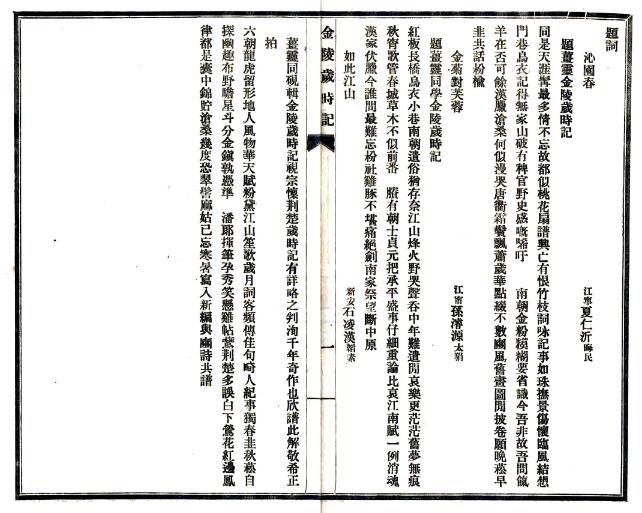 題詞
沁園春　江寧夏仁沂晦民
題薑靈金陵歲時記
同是天涯嘗最多情不忘故都似桃花扇譜興亡有恨竹枝詞咏記事如珠撫景傷懷臨風結想
門巷烏衣記得無家山破有稗官野史感嘅唏吁　南朝金粉糢糊要省識今吾非故吾問餼
羊在否可餘漢臘滄桑何似漫哭唐衢霜鬢飄蕭歲華點綴不數豳風舊畫圖閒披卷願晚菘早
韭共話枌榆
金菊對芙蓉　江甯孫濬源太狷
題薑靈同學金陵歲時記
紅板長橋烏衣小巷南朝遺俗猶存奈江山烽火野哭聲吞中年難遣閒哀樂更茫茫舊夢無痕
秋宵歌管春城草木不似前番　賸有朝士貞元把承平盛事仔細重論比哀江南賦一例消魂
漢家伏臘今誰問最難忘枌社雞豚不堪痛絕劍南家祭望斷中原
如此江山　新安石凌漢弢素
薑靈同硯輯金陵歲時記視宗懍荆楚歲時記有詳略之判洵千年奇作也欣譜此解敬希正
拍
六朝龍虎留形地人風物華天賦粉黛江山笙歌歲月詞客頻傳佳句畸人紀事獨春韭秋菘自
探幽趣布野瞻星斗分金鎭孰憑準　潘郞揮筆孕秀笑懸雞帖鷰荆楚多誤白下鶯花紅邊鳳
律都是囊中錦貯滄桑幾度恐翠嶜麻姑已忘寒暑寫入新編與豳詩共譜
金陵歲時記
一